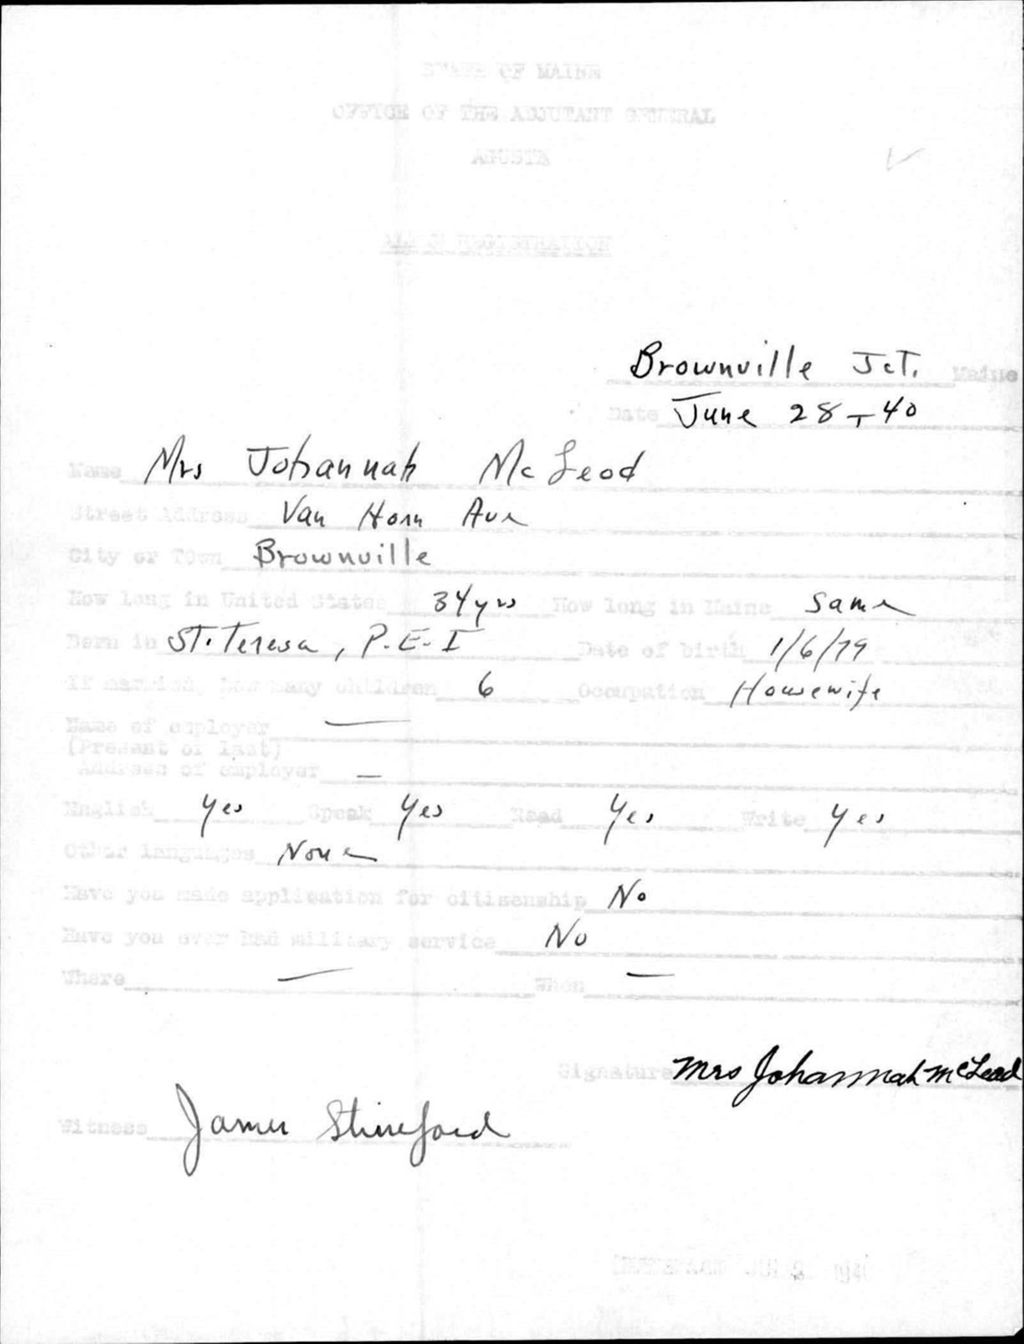 STATE OF MAINE
OFFICE OF THE ADJUTANT GENERAL
AGUSTA
ALIEN REGISTRATION
Brownville Jct. Maine
Date June 28-40
Name Mrs Johannah McLeod
Street Address Van Horn Ave
City or Town Brownville
How long in United States 34 yrs How long in Maine Same
Born in St. Teresa, P.E-I Date of birth 1/6/79
If married, how many children 6 Occupation Housewife
Name of employer —
(Present or last)
Address of employer —
English Yes Speak Yes Read Yes Write Yes
Other languages None
Have you made application for citizenship No
Have you ever had military service No
Where — When —
Signature Mrs Johannah McLeod
Witness James Stineford